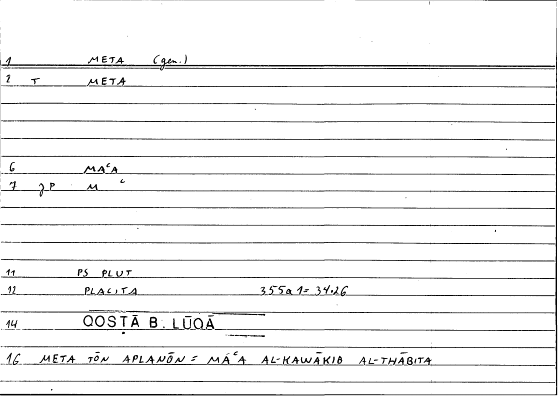 1 META (gen.)
2 T META
6 MAᶜA
7 JP M ᶜ
11 PS PLUT
12 PLACITA 355a1= 34.26
14 QOSṬĀ B. LŪQĀ
16 META TŌN APLANŌN = MAᶜA AL-KAWĀKIB AL-THĀBITA